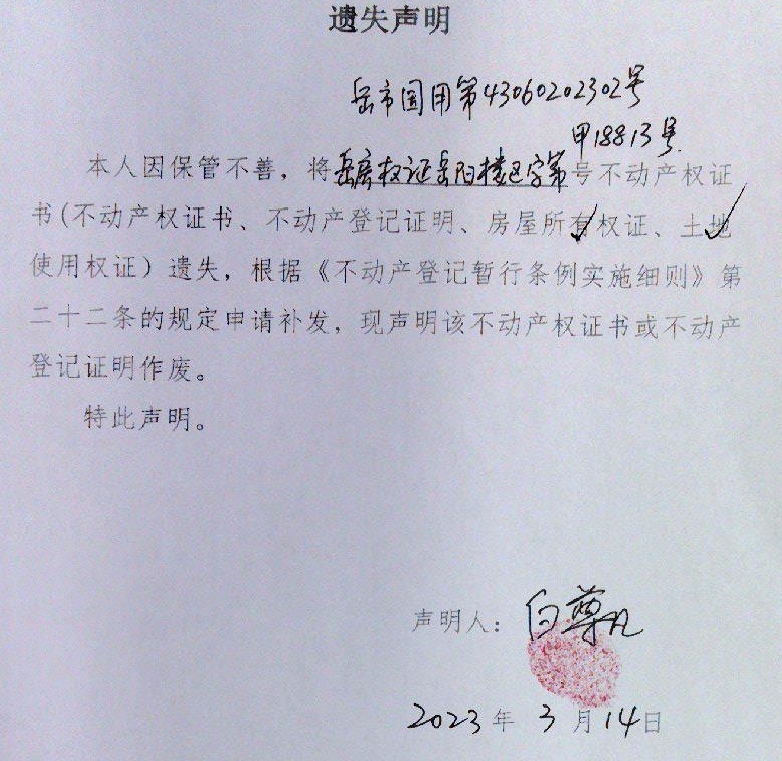 遗失声明
岳市国用第43060202302号
甲18813号
本人因保管不善，将岳房权证岳阳楼区字第号不动产权证
书(不动产权证书、不动产登记证明、房屋所有权证、土地
使用权证）遗失，根据《不动产登记暂行条例实施细则》第
二十二条的规定申请补发，现声明该不动产权证书或不动产
登记证明作废。
特此声明。
声明人：白尊凡
2023年3月14日